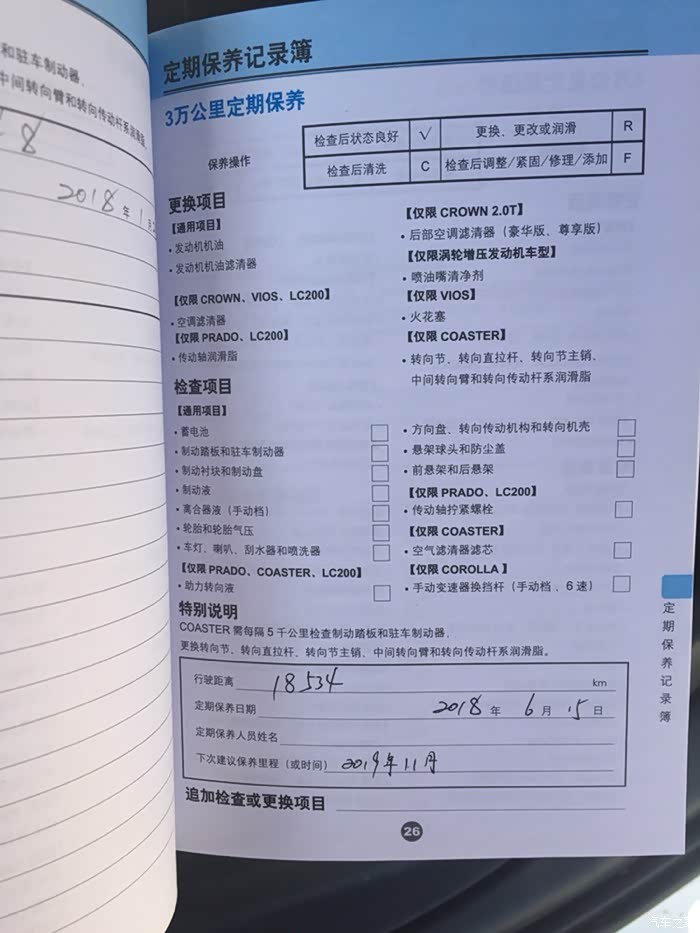 和驻车制动器、
中间转向臂和转向传动杆系润滑脂
8
2018 年 1 月
定期保养记录簿
3万公里定期保养
保养操作
检查后状态良好 √ 更换、更改或润滑 R
检查后清洗 C 检查后调整/紧固/修理/添加 F
更换项目
【通用项目】
·发动机机油
·发动机机油滤清器
【仅限 CROWN、VIOS、LC200】
·空调滤清器
【仅限 PRADO、LC200】
·传动轴润滑脂
【仅限 CROWN 2.0T】
·后部空调滤清器（豪华版、尊享版）
【仅限涡轮增压发动机车型】
·喷油嘴清净剂
【仅限 VIOS】
·火花塞
【仅限 COASTER】
·转向节、转向直拉杆、转向节主销、
中间转向臂和转向传动杆系润滑脂
检查项目
【通用项目】
·蓄电池
·制动踏板和驻车制动器
·制动衬块和制动盘
·制动液
·离合器液（手动档）
·轮胎和轮胎气压
·车灯、喇叭、刮水器和喷洗器
【仅限 PRADO、COASTER、LC200】
·助力转向液
·方向盘、转向传动机构和转向机壳
·悬架球头和防尘盖
·前悬架和后悬架
【仅限 PRADO、LC200】
·传动轴拧紧螺栓
【仅限 COASTER】
·空气滤清器滤芯
【仅限 COROLLA】
·手动变速器换挡杆（手动档、6速）
特别说明
COASTER 需每隔 5 千公里检查制动踏板和驻车制动器、
更换转向节、转向直拉杆、转向节主销、中间转向臂和转向传动杆系润滑脂。
行驶距离 18534 km
定期保养日期 2018 年 6 月 15 日
定期保养人员姓名
下次建议保养里程（或时间） 2019年11月
追加检查或更换项目
26
定期保养记录簿
汽车之